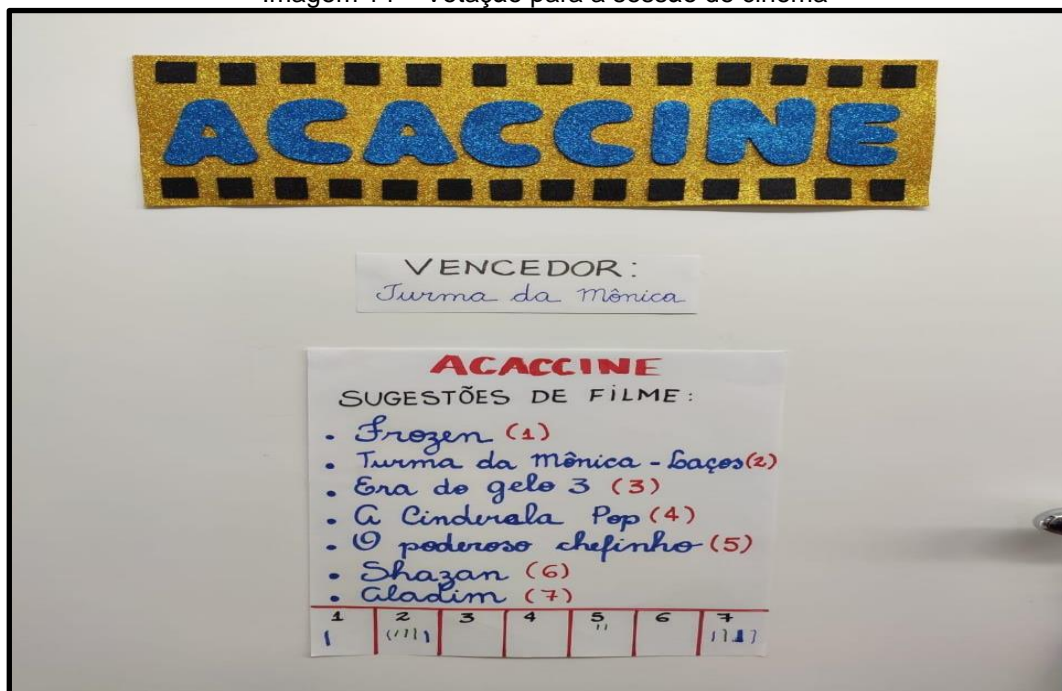 ACACCINE
VENCEDOR:
Turma da Mônica
ACACCINE
SUGESTÕES DE FILME:
• Frozen (1)
• Turma da Mônica - Laços (2)
• Era do gelo 3 (3)
• A Cinderela Pop (4)
• O poderoso chefinho (5)
• Shazan (6)
• Aladim (7)
1 2 3 4 5 6 7